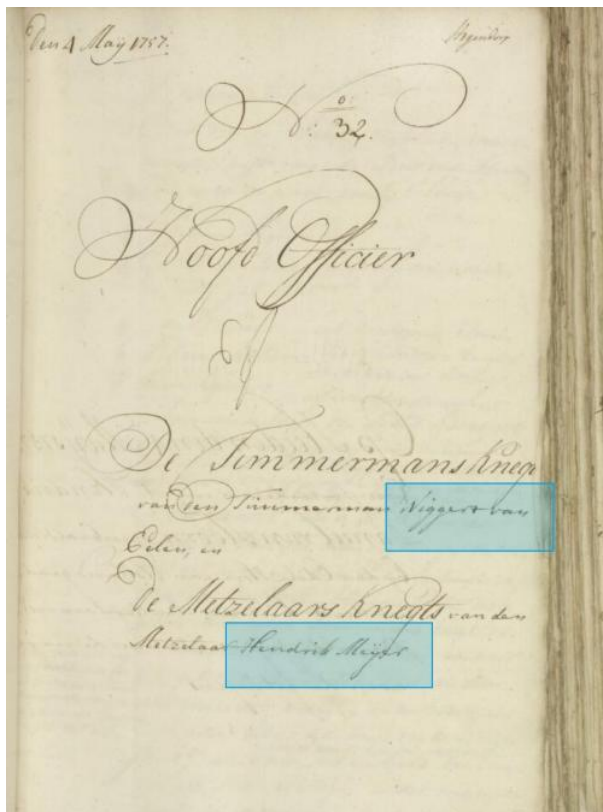 Den 4 Maÿ 1757.
N:o 32.
Hoofd Officier
De Timmermans Knegt
van den Timmerman Niggert van
Eelen, en
de Metzelaars Knegts van den
Metzelaar Hendrik Meÿer